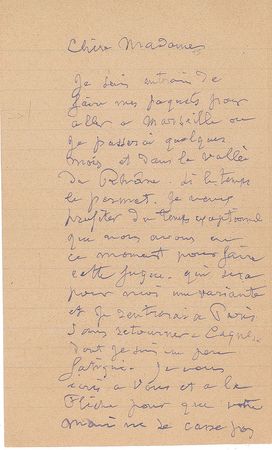 Chère Madame,
Je suis entrain de
faire mes paquets pour
aller a Marseille ou
je passerai quelques
mois et dans la vallée
du Rhône. si le temps
le permet. Je veux
profiter du temps exceptionnel
que nous avons en
ce moment pour faire
cette fugue. qui sera
pour moi une variante
et je rentrerai a Paris
sans retourner a Cagnes
dont je suis un peu
fatigué. Je vous
écris a vous et a la
pour que votre
mari ne se casse pas